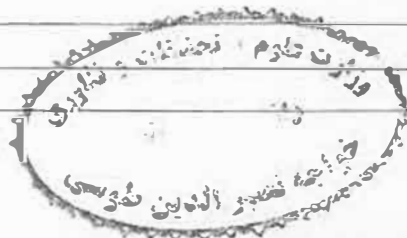 وزارت علوم تحقیقات و فناوری
خواجه نصیر الدین طوسی